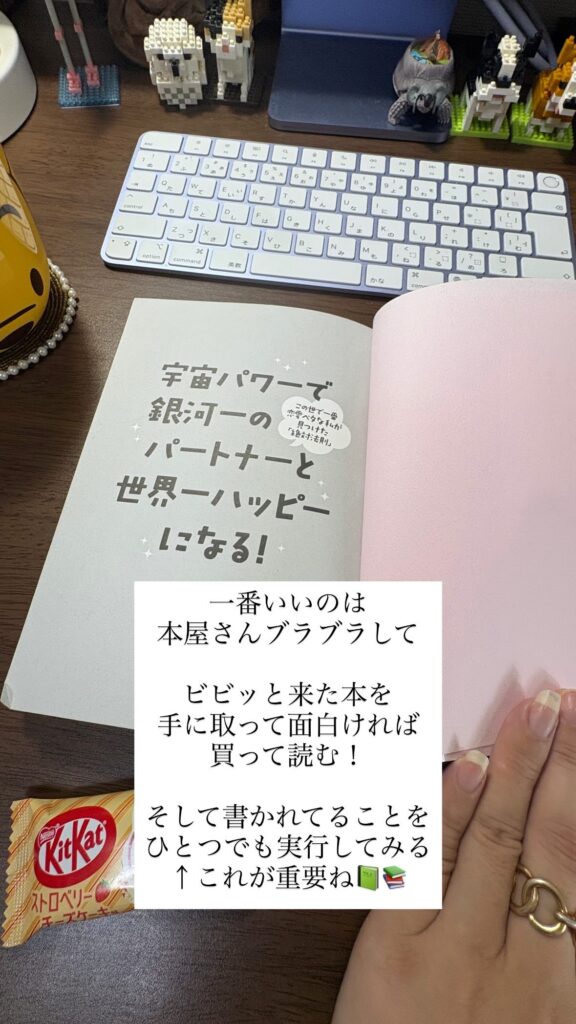 宇宙パワーで
銀河一の
パートナーと
世界一ハッピー
になる!
この世で一番
恋愛ベタな私が
見つけた
「絶対法則」
一番いいのは
本屋さんブラブラして
ビビッと来た本を
手に取って面白ければ
買って読む!
そして書かれてることを
ひとつでも実行してみる
↑これが重要ね📗📚
Nestle
KitKat
ストロベリー
チーズケーキ
control
option
command
英数
かな
command